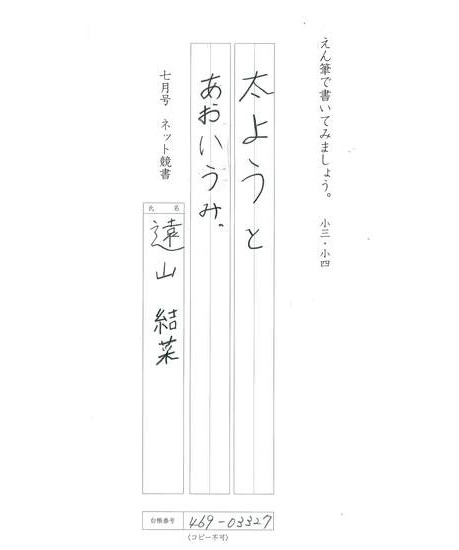 えん筆で書いてみましょう。 小三・小四
太ようと
あおいうみ。
七月号 ネット競書
氏名
遠山 結菜
台帳番号 469-03327
〈コピー不可〉